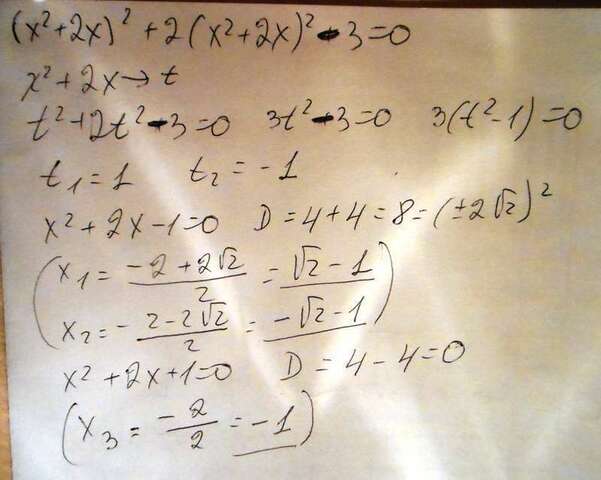 (x²+2x)² + 2(x²+2x)² - 3 = 0
x² + 2x → t
t² + 2t² - 3 = 0 3t² - 3 = 0 3(t² - 1) = 0
t₁ = 1 t₂ = -1
x² + 2x - 1 = 0 D = 4 + 4 = 8 = (±2√2)²
(x₁ = (-2 + 2√2)/2 = √2 - 1
x₂ = -(2 - 2√2)/2 = -√2 - 1)
x² + 2x + 1 = 0 D = 4 - 4 = 0
(x₃ = -2/2 = -1)